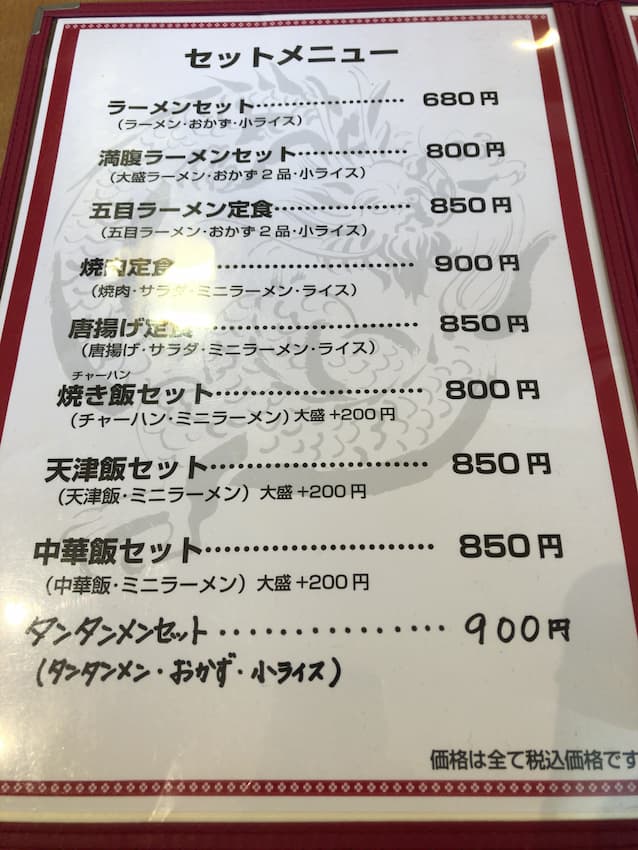 セットメニュー
ラーメンセット‥‥‥‥‥‥‥‥ 680円
(ラーメン・おかず・小ライス)
満腹ラーメンセット‥‥‥‥‥‥ 800円
(大盛ラーメン・おかず2品・小ライス)
五目ラーメン定食‥‥‥‥‥‥‥ 850円
(五目ラーメン・おかず2品・小ライス)
焼肉定食‥‥‥‥‥‥‥‥‥‥‥ 900円
(焼肉・サラダ・ミニラーメン・ライス)
唐揚げ定食‥‥‥‥‥‥‥‥‥‥ 850円
(唐揚げ・サラダ・ミニラーメン・ライス)
チャーハン
焼き飯セット‥‥‥‥‥‥‥‥‥ 800円
(チャーハン・ミニラーメン)大盛+200円
天津飯セット‥‥‥‥‥‥‥‥‥ 850円
(天津飯・ミニラーメン) 大盛+200円
中華飯セット‥‥‥‥‥‥‥‥‥ 850円
(中華飯・ミニラーメン) 大盛+200円
タンタンメンセット‥‥‥‥‥‥‥ 900円
(タンタンメン・おかず・小ライス)
価格は全て税込価格です